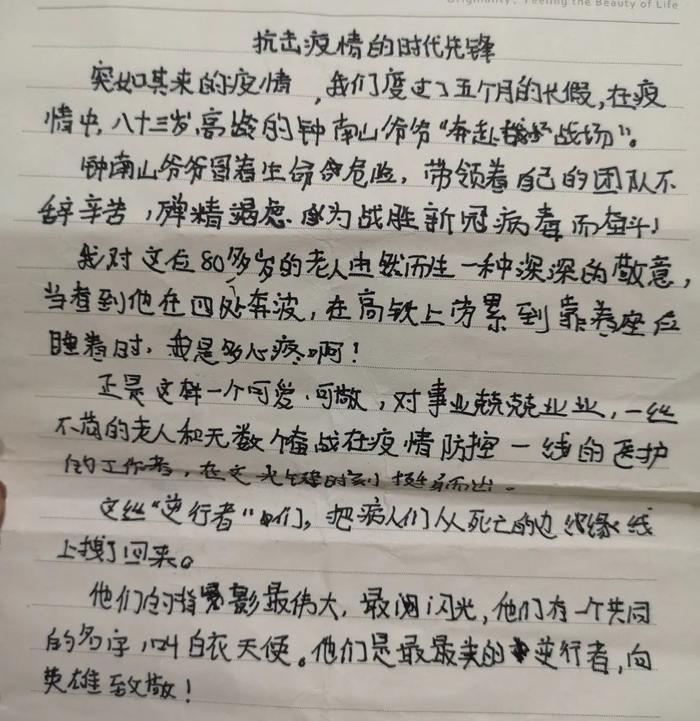 Originality, Feeling the Beauty of Life
抗击疫情的时代先锋
突如其来的疫情，我们度过了五个月的长假，在疫
情中，八十三岁高龄的钟南山爷爷“奔赴战场”。
钟南山爷爷冒着生命危险，带领着自己的团队不
辞辛苦，殚精竭虑、为战胜新冠病毒而奋斗！
我对这位80多岁的老人由然而生一种深深的敬意，
当看到他在四处奔波，在高铁上劳累到靠着座位
睡着时，我是多心疼啊！
正是这样一个可爱、可敬，对事业兢兢业业，一丝
不苟的老人和无数个奋战在疫情防控一线的医护
的工作者，在这关键时刻挺身而出。
这些“逆行者”们，把病人们从死亡的边缘线
上拽了回来。
他们的背影最伟大，最闪光，他们有一个共同
的名字，叫白衣天使。他们是最最美的逆行者，向
英雄致敬！